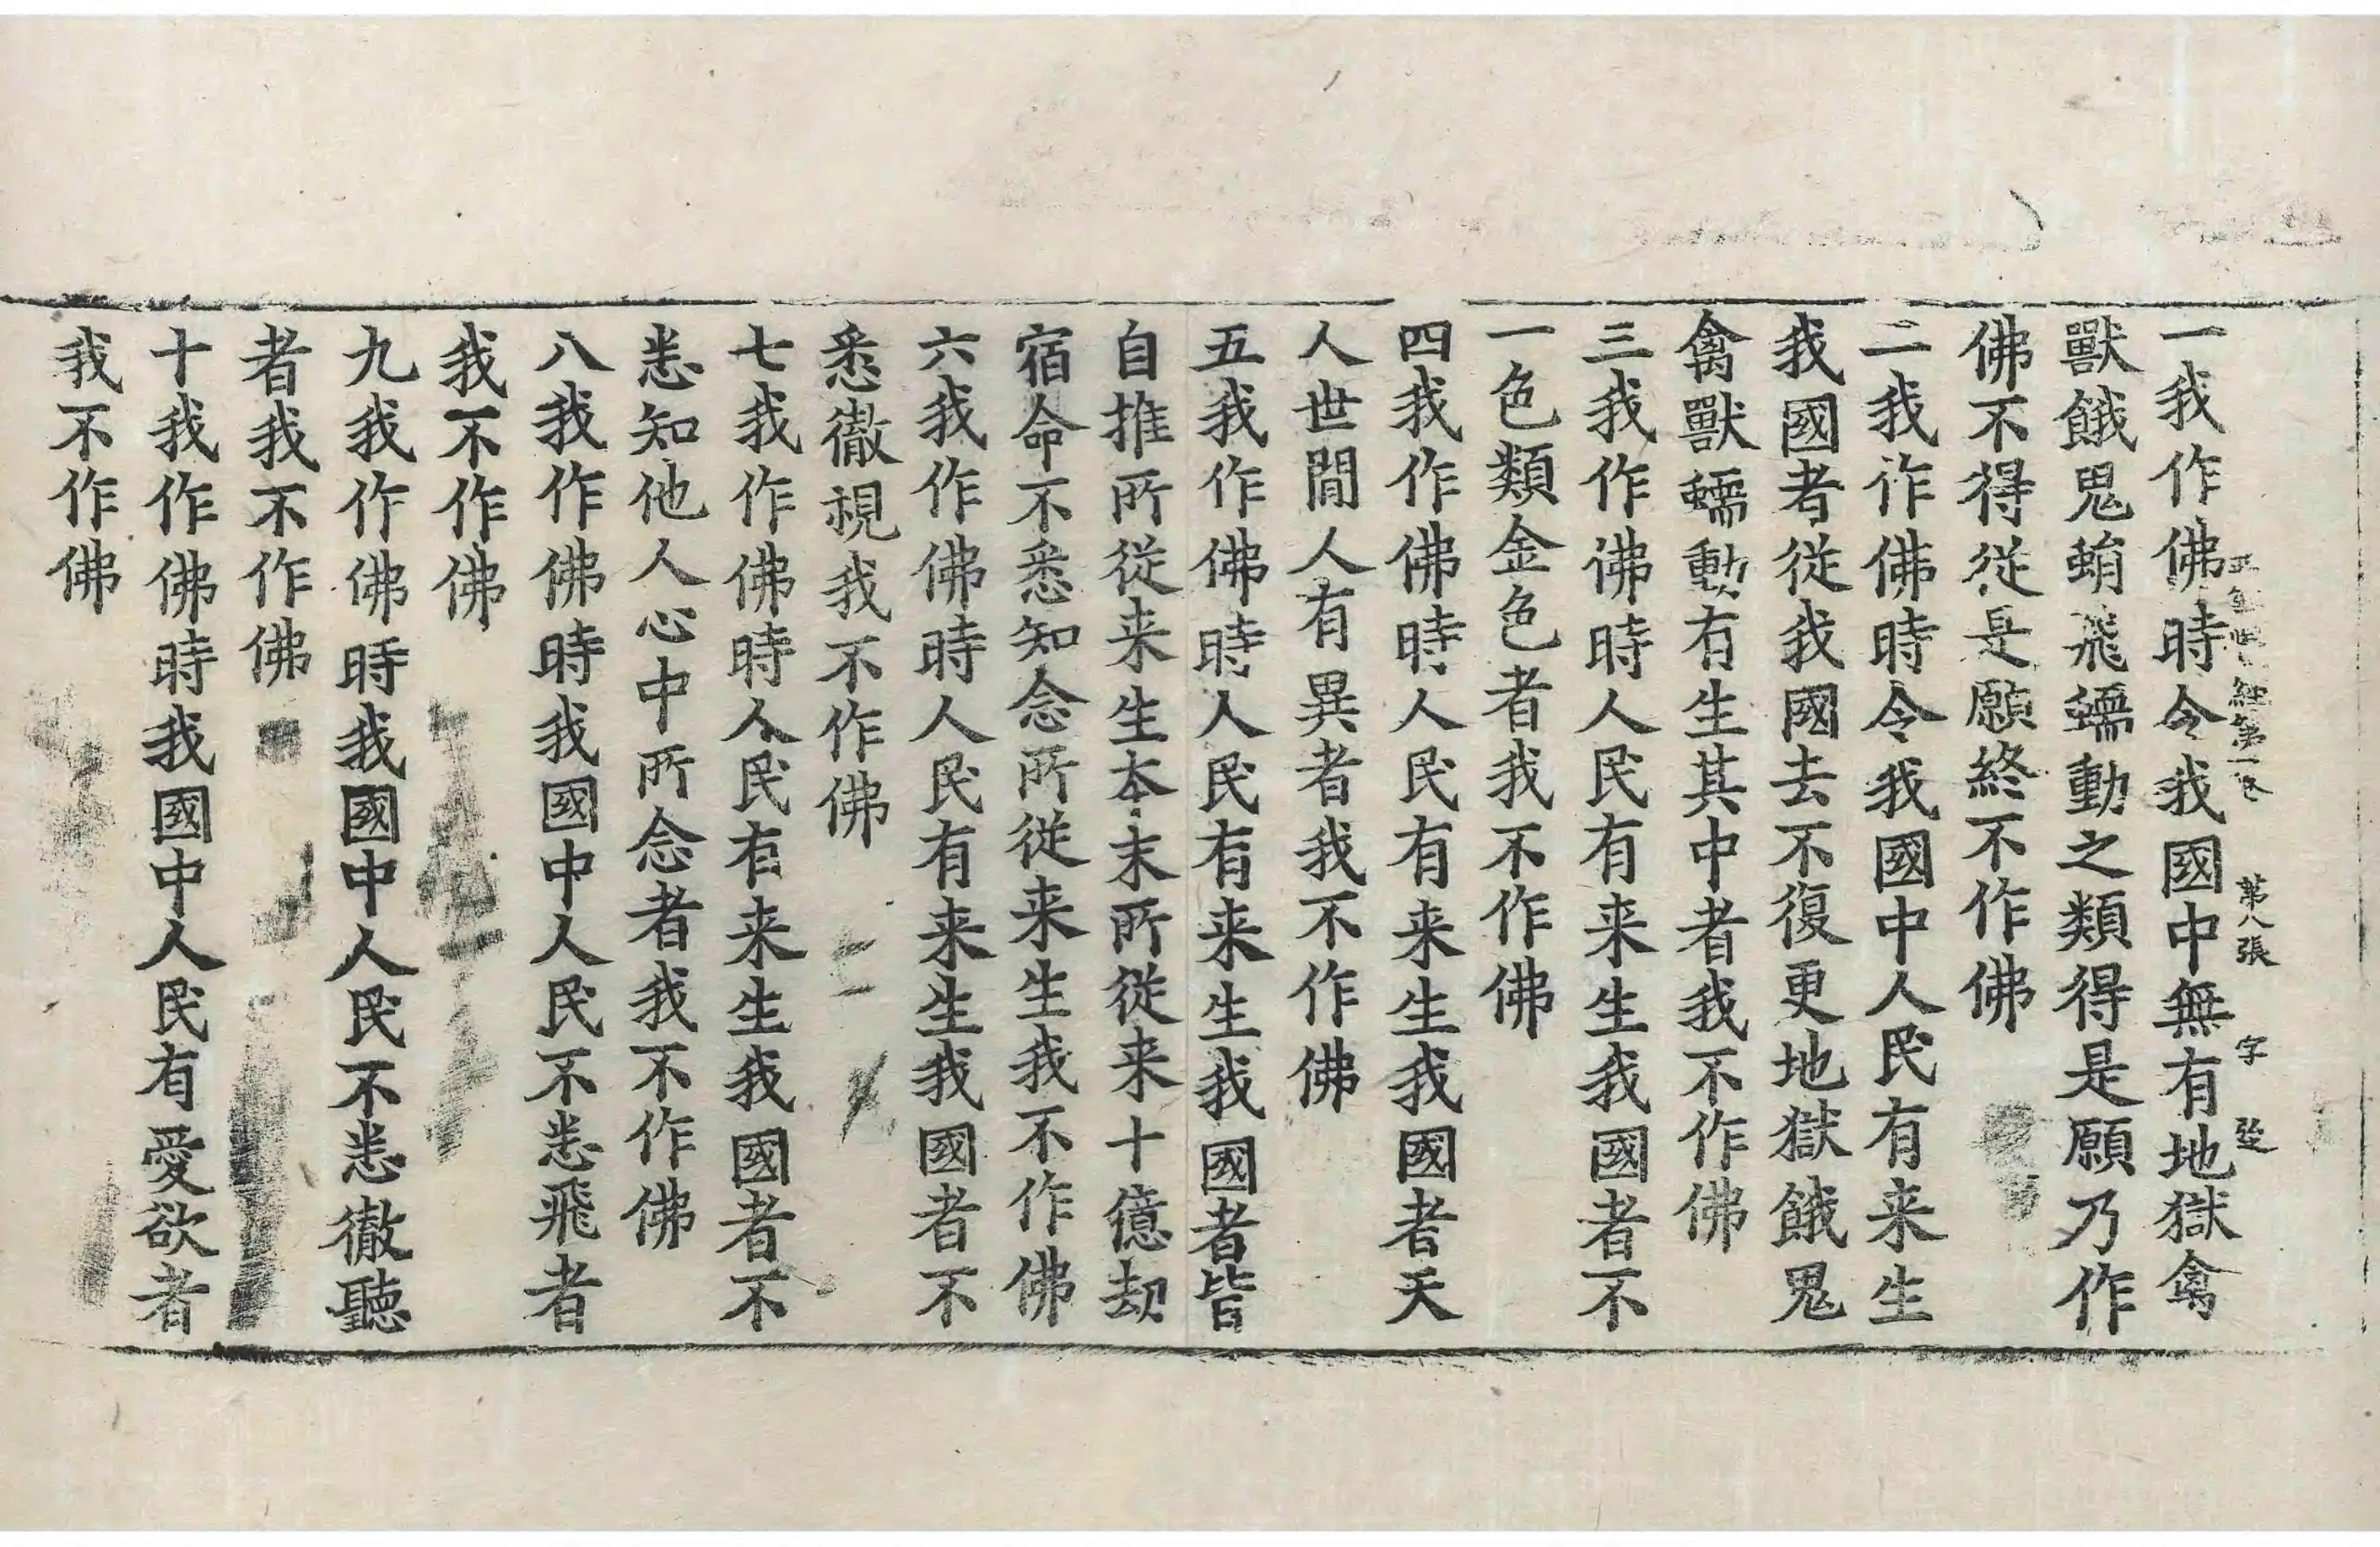 一我作佛時令我國中無有地獄禽
獸餓鬼蜎飛蠕動之類得是願乃作
佛不得從是願終不作佛
二我作佛時令我國中人民有来生
我國者從我國去不復更地獄餓鬼
禽獸蠕動有生其中者我不作佛
三我作佛時人民有来生我國者不
一色類金色者我不作佛
四我作佛時人民有来生我國者天
人世間人有異者我不作佛
五我作佛時人民有来生我國者皆
自推所從来生夲末所從来十億劫
宿命不悉知念所從来生我不作佛
六我作佛時人民有来生我國者不
悉徹視我不作佛
七我作佛時人民有来生我國者不
悉知他人心中所念者我不作佛
八我作佛時我國中人民不悉飛者
我不作佛
九我作佛時我國中人民不悉徹聽
者我不作佛
十我作佛時我國中人民有愛欲者
我不作佛
經第一卷 第八張 字